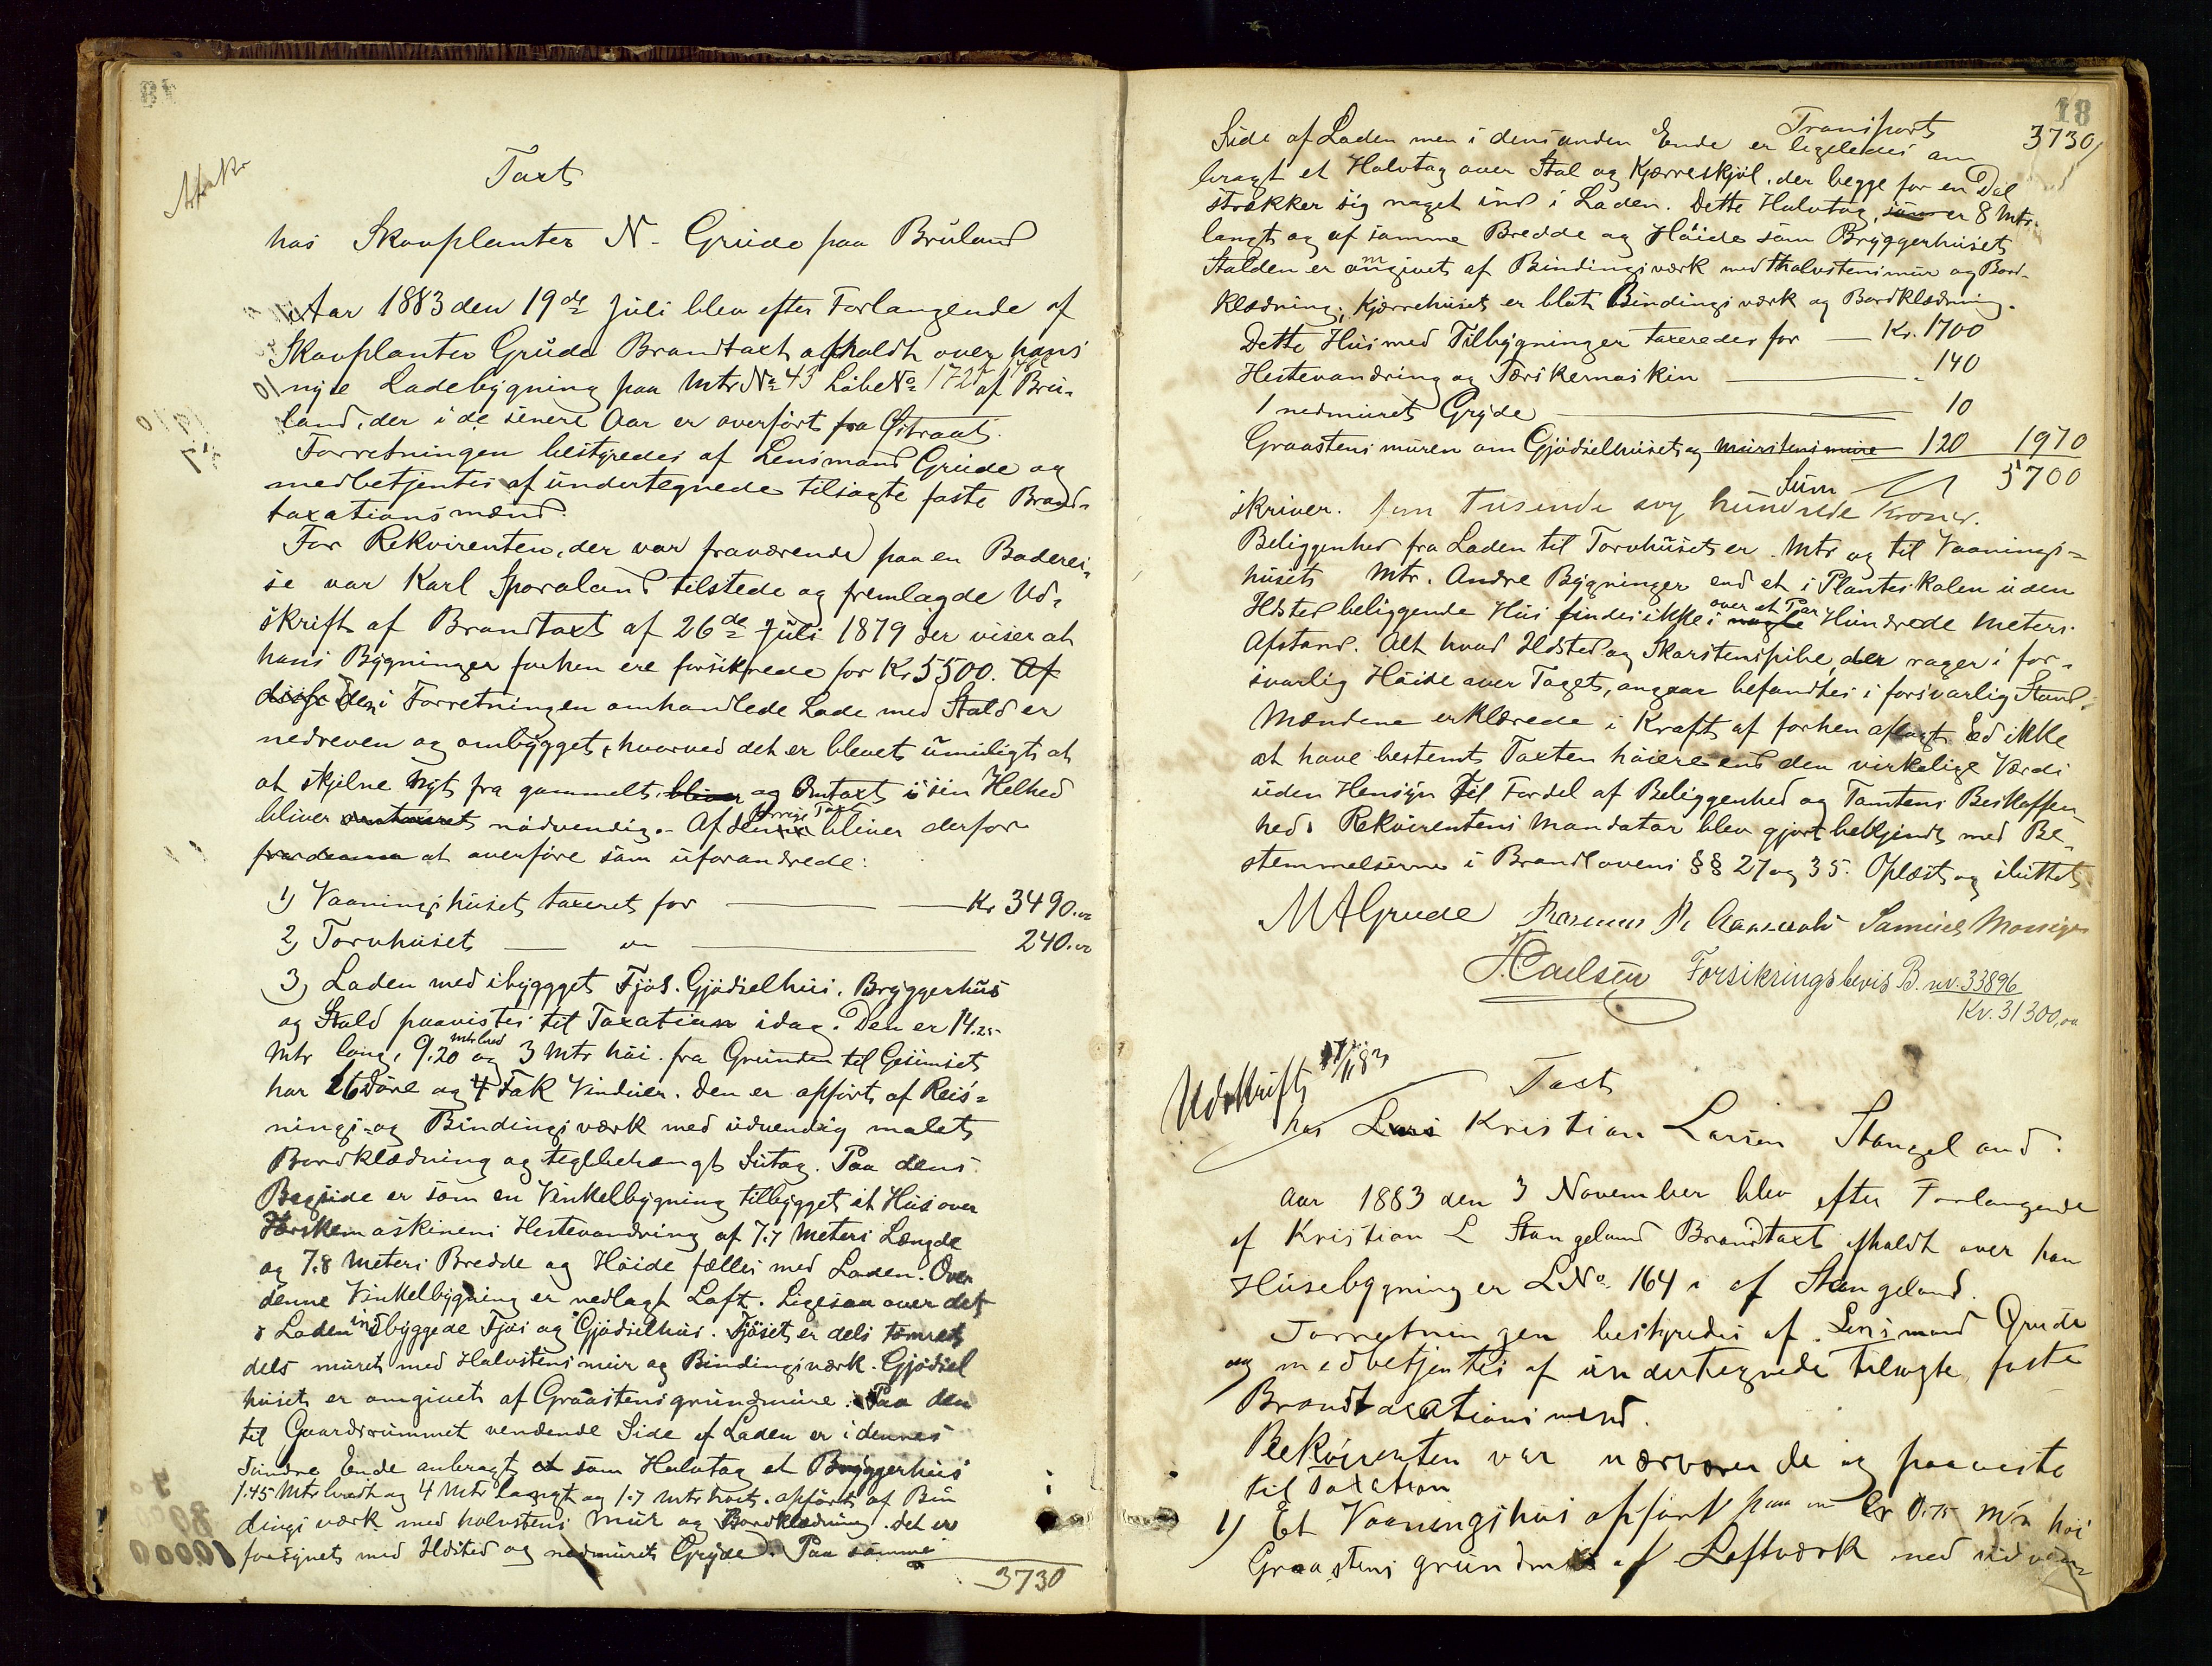 Taxt
hos Skovplanter N. Grude paa Bruland
Aar 1883 den 19de Juli blev efter Forlangende af
Skovplanter Grude Brandtaxt afholdt over hans
nye Ladebygning paa Mtr No 43 Løbe No 172 af Bru-
land, der i de senere Aar er overført fra Østraat.
Forretningen bestyredes af Lensmand Grude og
medbetjentes af undertegnede tilsagte faste Brand-
taxationsmænd.
For Rekvirenten, der var fraværende paa en Baderei-
se var Karl Sporaland tilstede og fremlagde Ud-
skrift af Brandtaxt af 26de Juli 1879 der viser at
hans Bygninger forhen ere forsikrede for Kr 5500. Af
disse Den i Forretningen omhandlede Lade med Stald er
nedreven og ombygget, hvorved det er blevet umuligt at
at skjelne Nyt fra gammelt, bliver og Omtaxt i sin Helhed
bliver omtaxeret nødvendig. Af denne forrige Taxt bliver derfor
fra denne at overføre som uforandrede:
1) Vaaningshuset taxeret for Kr 3490.00
2) Torvhuset — " — 240.00
3) Laden med ibyggget Fjøs. Gjødselhus, Bryggerhus
og Stald paavistes til Taxation idag. Den er 14.25
Mtr lang, 9.20 mtr bred og 3 Mtr høi fra Grunden til Gesimset
har 26 Døre og 4 Fak Vinduer. Den er opført af Reis-
nings- og Bindingsværk med udvendig malet
Bordklædning og teglbehængt Sutag. Paa dens
Bagside er som en Vinkelbygning tilbygget et Hus over
Tærskemaskinens Hestevandring af 7.7 Meters Længde
og 7.8 Meters Bredde og Høide fælles med Laden. Over
denne Vinkelbygning er nedlagt Loft. Ligesaa over det
i Laden indbyggede Fjøs og Gjødselhus. Fjøset er dels tømret
dels muret med Halvstensmur og Bindingsværk. Gjødsel
huset er omgivet af Graastensgrundmure. Paa den
til Gaardsrummet vendende Side af Laden er i dennes
søndre Ende anbragt et som Halvtag et Bryggerhus
1.45 Mtr bredt og 4 Mtr langt og 1.7 Mtr høit. opført af Bin
dingsværk med halvstens Mur og Bordklædning. Det er
forsynet med Ildsted og nedmuret Gryde. Paa samme
3730
18
Transport 3730
Side af Laden men i dens anden Ende er ligeledes an
bragt et Halvtag over Stal og Kjærreskjøl, der begge for en Del
strækker sig noget ind i Laden. Dette Halvtag, som er 8 Mtr.
langt og af samme Bredde og Høide som Bryggerhuset
Stalden er omgivet af Bindingsværk med Halvstensmur og Bord-
klædning; Kjærrehuset er blot Bindingsværk og Bordklædning.
Dette Hus med Tilbygninger taxeredes for — Kr. 1700
Hestevandring og Tærskemaskin — 140
1 nedmuret Gryde — 10
Graastensmuren om Gjødselhuset og murstensmure 120 1970
Sum 5700
skriver. fem Tusende syv hundrede Kroner.
Beliggenhed fra Laden til Torvhuset er Mtr og til Vaanings-
huset Mtr. Andre Bygninger end et i Planteskolen uden
Ildsted beliggende Hus findes ikke i nogle over et Par Hundrede Meters
Afstand. Alt hvad Ildsted og Skorstenspibe, der rager i for-
svarlig Høide over Taget, angaar befandtes i forsvarlig Stand.
Mændene erklærede i Kraft af forhen aflagt Ed ikke
at have bestemt Taxten høiere end den virkelige Værdi
uden Hensyn til Fordel af Beliggenhed og Tomtens Beskaffen
hed. Rekvirentens Mandatar blev gjort bekjendt med Be-
stemmelserne i Brandlovens §§ 27 og 35. Oplæst og sluttet.
MAGrude Rasmus P. Samuel Mossige
Forsikringsbevis B. nr. 33896
Kr. 31300,00
Udskrift 17/11 83
Taxt
hos Lars Kristian Larsen Stangeland.
Aar 1883 den 3 November blev efter Forlangende
af Kristian L Stangeland Brandtaxt afholdt over han
Husebygninger LNo 164 i af Stangeland.
Forretningen bestyredes af Lensmand Grude
og medbetjentes af undertegnede tilsagte faste
Brandtaxationsmænd.
Rekvirenten var nærværende og paaviste
til Taxation
1) Et Vaaningshus opført paa en 0.75 Mtr høi
Graastens grundmur af Loftværk med udven-